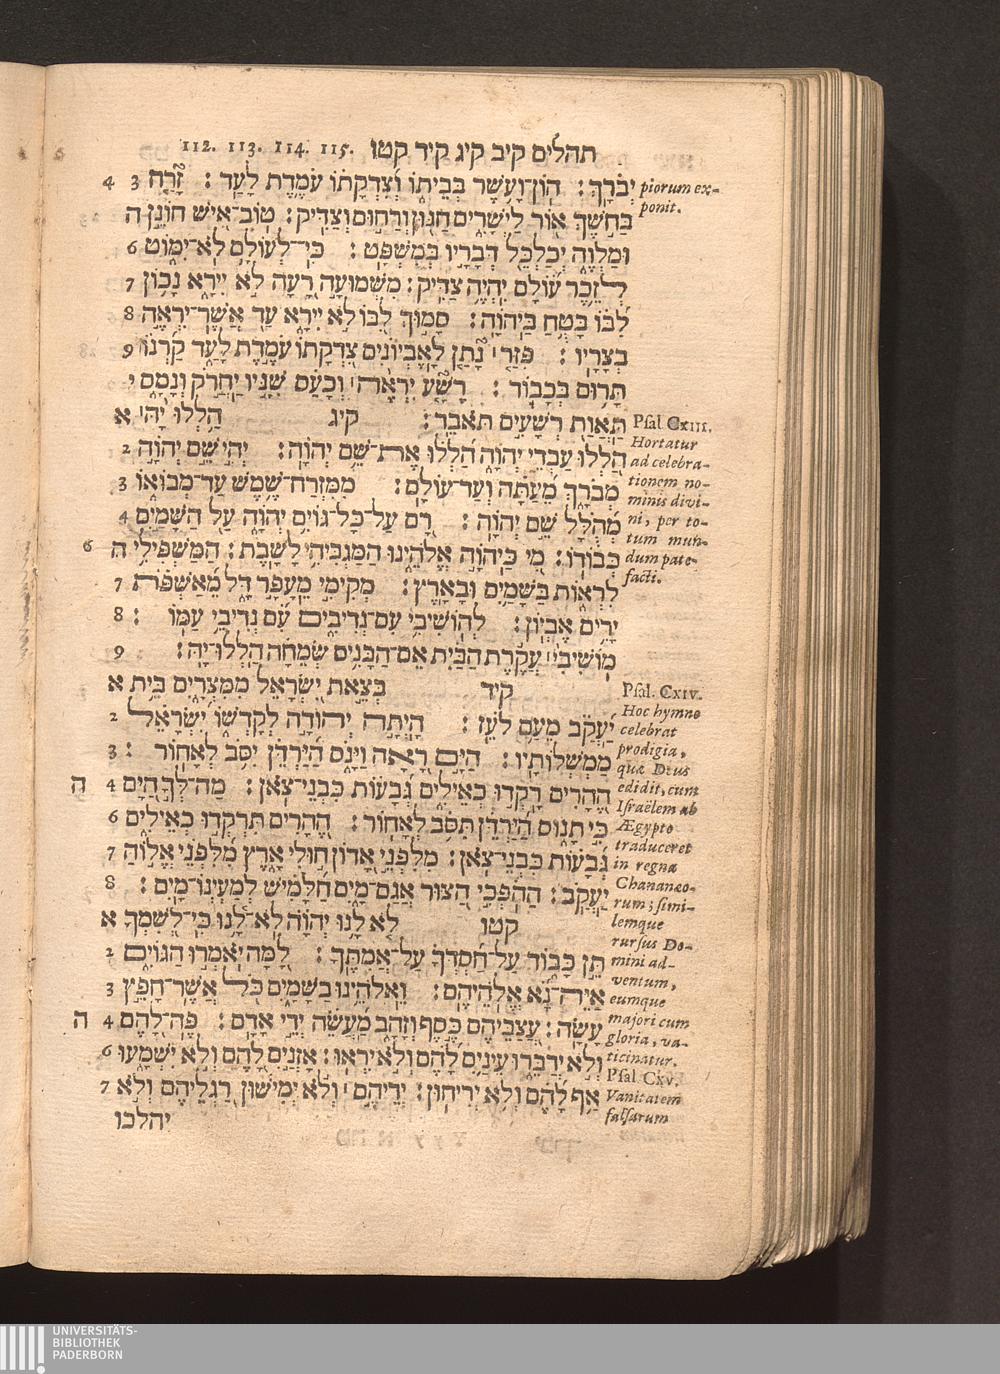 תהלים קיב קיג קיד קטו 112. 113. 114. 115.
יְבֹרָךְ׃ הוֹן־וָעֹשֶׁר בְּבֵיתוֹ וְצִדְקָתוֹ עֹמֶדֶת לָעַד׃ זָרַח 3 4
בַּחֹשֶׁךְ אוֹר לַיְשָׁרִים חַנּוּן וְרַחוּם וְצַדִּיק׃ טוֹב־אִישׁ חוֹנֵן ה
וּמַלְוֶה יְכַלְכֵּל דְּבָרָיו בְּמִשְׁפָּט׃ כִּי־לְעוֹלָם לֹא־יִמּוֹט 6
לְזֵכֶר עוֹלָם יִהְיֶה צַדִּיק׃ מִשְּׁמוּעָה רָעָה לֹא יִירָא נָכוֹן 7
לִבּוֹ בָּטֻחַ בַּיהוָה׃ סָמוּךְ לִבּוֹ לֹא יִירָא עַד אֲשֶׁר־יִרְאֶה 8
בְצָרָיו׃ פִּזַּר נָתַן לָאֶבְיוֹנִים צִדְקָתוֹ עֹמֶדֶת לָעַד קַרְנוֹ 9
תָּרוּם בְּכָבוֹד׃ רָשָׁע יִרְאֶה וְכָעָס שִׁנָּיו יַחֲרֹק וְנָמָס י
תַּאֲוַת רְשָׁעִים תֹּאבֵד׃ קיג הַלְלוּ יָהּ א
הַלְלוּ עַבְדֵי יְהוָה הַלְלוּ אֶת־שֵׁם יְהוָה׃ יְהִי שֵׁם יְהוָה 2
מְבֹרָךְ מֵעַתָּה וְעַד־עוֹלָם׃ מִמִּזְרַח־שֶׁמֶשׁ עַד־מְבוֹאוֹ 3
מְהֻלָּל שֵׁם יְהוָה׃ רָם עַל־כָּל־גּוֹיִם יְהוָה עַל הַשָּׁמַיִם 4
כְּבוֹדוֹ׃ מִי כַּיהוָה אֱלֹהֵינוּ הַמַּגְבִּיהִי לָשָׁבֶת׃ הַמַּשְׁפִּילִי ה 6
לִרְאוֹת בַּשָּׁמַיִם וּבָאָרֶץ׃ מְקִימִי מֵעָפָר דָּל מֵאַשְׁפֹּת 7
יָרִים אֶבְיוֹן׃ לְהוֹשִׁיבִי עִם־נְדִיבִים עִם נְדִיבֵי עַמּוֹ׃ 8
מוֹשִׁיבִי עֲקֶרֶת הַבַּיִת אֵם־הַבָּנִים שְׂמֵחָה הַלְלוּ־יָהּ׃ 9
קיד בְּצֵאת יִשְׂרָאֵל מִמִּצְרָיִם בֵּית א
יַעֲקֹב מֵעַם לֹעֵז׃ הָיְתָה יְהוּדָה לְקָדְשׁוֹ יִשְׂרָאֵל 2
מַמְשְׁלוֹתָיו׃ הַיָּם רָאָה וַיָּנֹס הַיַּרְדֵּן יִסֹּב לְאָחוֹר׃ 3
הֶהָרִים רָקְדוּ כְאֵילִים גְּבָעוֹת כִּבְנֵי־צֹאן׃ מַה־לְּךָ הַיָּם 4 ה
כִּי תָנוּס הַיַּרְדֵּן תִּסֹּב לְאָחוֹר׃ הֶהָרִים תִּרְקְדוּ כְאֵילִים 6
גְּבָעוֹת כִּבְנֵי־צֹאן׃ מִלִּפְנֵי אָדוֹן חוּלִי אָרֶץ מִלִּפְנֵי אֱלוֹהַּ 7
יַעֲקֹב׃ הַהֹפְכִי הַצּוּר אֲגַם־מָיִם חַלָּמִישׁ לְמַעְיְנוֹ־מָיִם׃ 8
קטו לֹא לָנוּ יְהוָה לֹא־לָנוּ כִּי־לְשִׁמְךָ א
תֵּן כָּבוֹד עַל־חַסְדְּךָ עַל־אֲמִתֶּךָ׃ לָמָּה יֹאמְרוּ הַגּוֹיִם 2
אַיֵּה־נָא אֱלֹהֵיהֶם׃ וֵאלֹהֵינוּ בַשָּׁמָיִם כֹּל אֲשֶׁר־חָפֵץ 3
עָשָׂה׃ עֲצַבֵּיהֶם כֶּסֶף וְזָהָב מַעֲשֵׂה יְדֵי אָדָם׃ פֶּה־לָהֶם 4 ה
וְלֹא יְדַבֵּרוּ עֵינַיִם לָהֶם וְלֹא יִרְאוּ׃ אָזְנַיִם לָהֶם וְלֹא יִשְׁמָעוּ 6
אַף לָהֶם וְלֹא יְרִיחוּן׃ יְדֵיהֶם וְלֹא יְמִישׁוּן רַגְלֵיהֶם וְלֹא 7
יהלכו
piorum ex-
ponit.
Psal. Cxiii.
Hortatur
ad celebra-
tionem no-
minis divi-
ni, per to-
tum mun-
dum pate-
facti.
Psal. Cxiv.
Hoc hymno
celebrat
prodigia,
quæ Deus
edidit, cum
Israëlem ab
Ægypto
traduceret
in regna
Chananæo-
rum; simi-
lemque
rursus Do-
mini ad-
ventum,
eumque
majori cum
gloria, va-
ticinatur.
Psal. Cxv.
Vanitatem
falsarum
UNIVERSITÄTS-
BIBLIOTHEK
PADERBORN